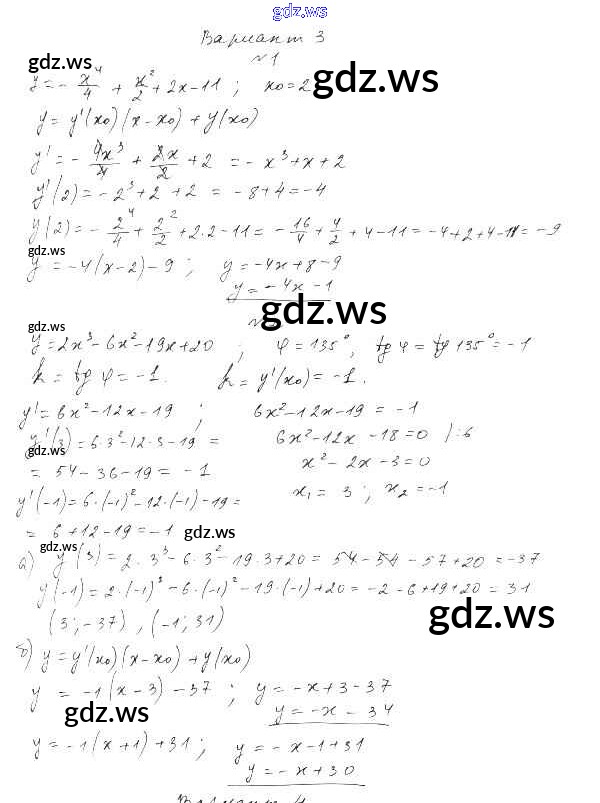 gdz.ws
Вариант 3
gdz.ws
№1
y = - x⁴/4 + x²/2 + 2x - 11 ; x₀ = 2
gdz.ws
y = y'(x₀)(x - x₀) + y(x₀)
y' = - 4x³/4 + 2x/2 + 2 = - x³ + x + 2
y'(2) = - 2³ + 2 + 2 = - 8 + 4 = - 4
y(2) = - 2⁴/4 + 2²/2 + 2·2 - 11 = - 16/4 + 4/2 + 4 - 11 = - 4 + 2 + 4 - 11 = - 9
gdz.ws
y = - 4(x - 2) - 9 ; y = - 4x + 8 - 9
y = - 4x - 1
gdz.ws
gdz.ws
y = 2x³ - 6x² - 19x + 20 ; φ = 135°, tg φ = tg 135° = - 1
k = tg φ = - 1. k = y'(x₀) = - 1.
y' = 6x² - 12x - 19 ; 6x² - 12x - 19 = - 1
y'(3) = 6·3² - 12·3 - 19 = 6x² - 12x - 18 = 0 /:6
gdz.ws
= 54 - 36 - 19 = - 1 x² - 2x - 3 = 0
y'(-1) = 6·(-1)² - 12·(-1) - 19 = x₁ = 3 ; x₂ = - 1
= 6 + 12 - 19 = - 1
gdz.ws
gdz.ws
а) y(3) = 2·3³ - 6·3² - 19·3 + 20 = 54 - 54 - 57 + 20 = - 37
y(-1) = 2·(-1)³ - 6·(-1)² - 19·(-1) + 20 = - 2 - 6 + 19 + 20 = 31
(3; -37), (-1; 31)
gdz.ws
б) y = y'(x₀)(x - x₀) + y(x₀)
y = - 1(x - 3) - 37 ; y = - x + 3 - 37
gdz.ws
y = - x - 34
y = - 1(x + 1) + 31 ; y = - x - 1 + 31
y = - x + 30